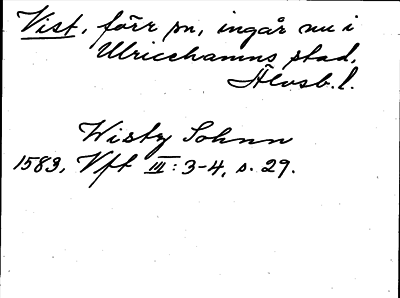 Vist, förr sn, ingår nu i
Ulricehamns stad,
Älvsb. l.
Wisty Sohnn
1583, Vft III: 3-4, s. 29.